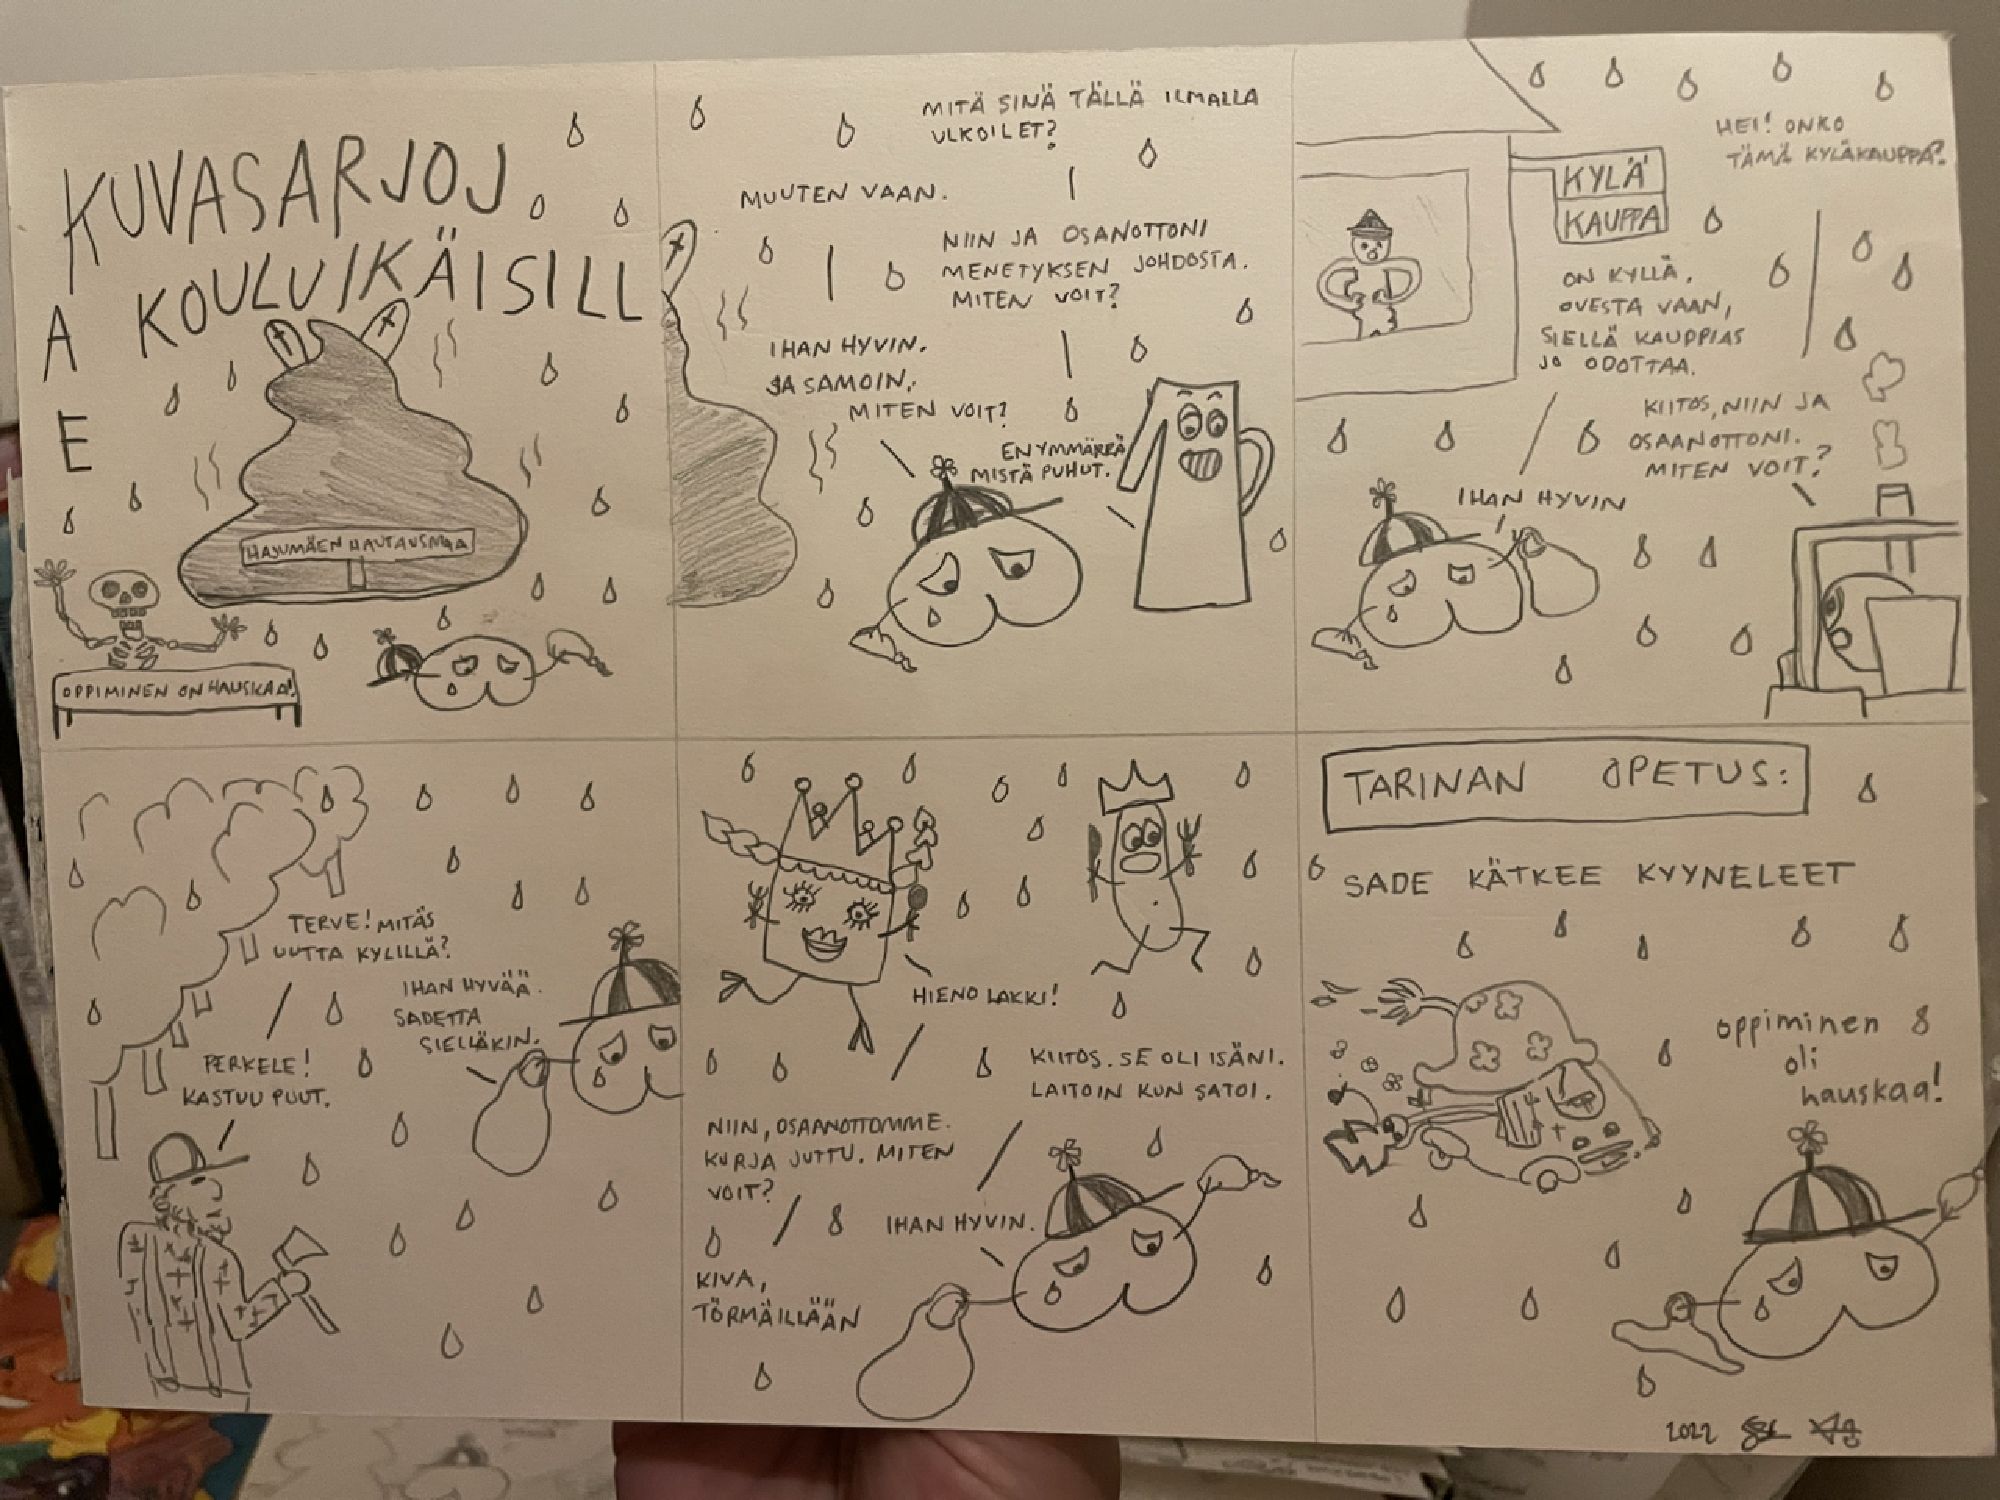 KUVASARJOJ
A KOULUIKÄISILL
E
HAJUMÄEN HAUTAUSMAA
OPPIMINEN ON HAUSKAA!
MITÄ SINÄ TÄLLÄ ILMALLA
ULKOILET?
MUUTEN VAAN.
NIIN JA OSANOTTONI
MENETYKSEN JOHDOSTA.
MITEN VOIT?
IHAN HYVIN.
JA SAMOIN.
MITEN VOIT?
EN YMMÄRRÄ
MISTÄ PUHUT.
HEI! ONKO
TÄMÄ KYLÄKAUPPA?
KYLÄ
KAUPPA
ON KYLLÄ,
OVESTA VAAN,
SIELLÄ KAUPPIAS
JO ODOTTAA.
KIITOS, NIIN JA
OSAANOTTONI.
MITEN VOIT?
IHAN HYVIN
TERVE! MITÄS
UUTTA KYLILLÄ?
IHAN HYVÄÄ.
SADETTA
SIELLÄKIN.
PERKELE!
KASTUU PUUT.
HIENO LAKKI!
KIITOS. SE OLI ISÄNI.
LAITOIN KUN SATOI.
NIIN, OSAANOTTOMME.
KURJA JUTTU. MITEN
VOIT?
IHAN HYVIN.
KIVA,
TÖRMÄILLÄÄN
TARINAN OPETUS:
SADE KÄTKEE KYYNELEET
oppiminen
oli
hauskaa!
2022